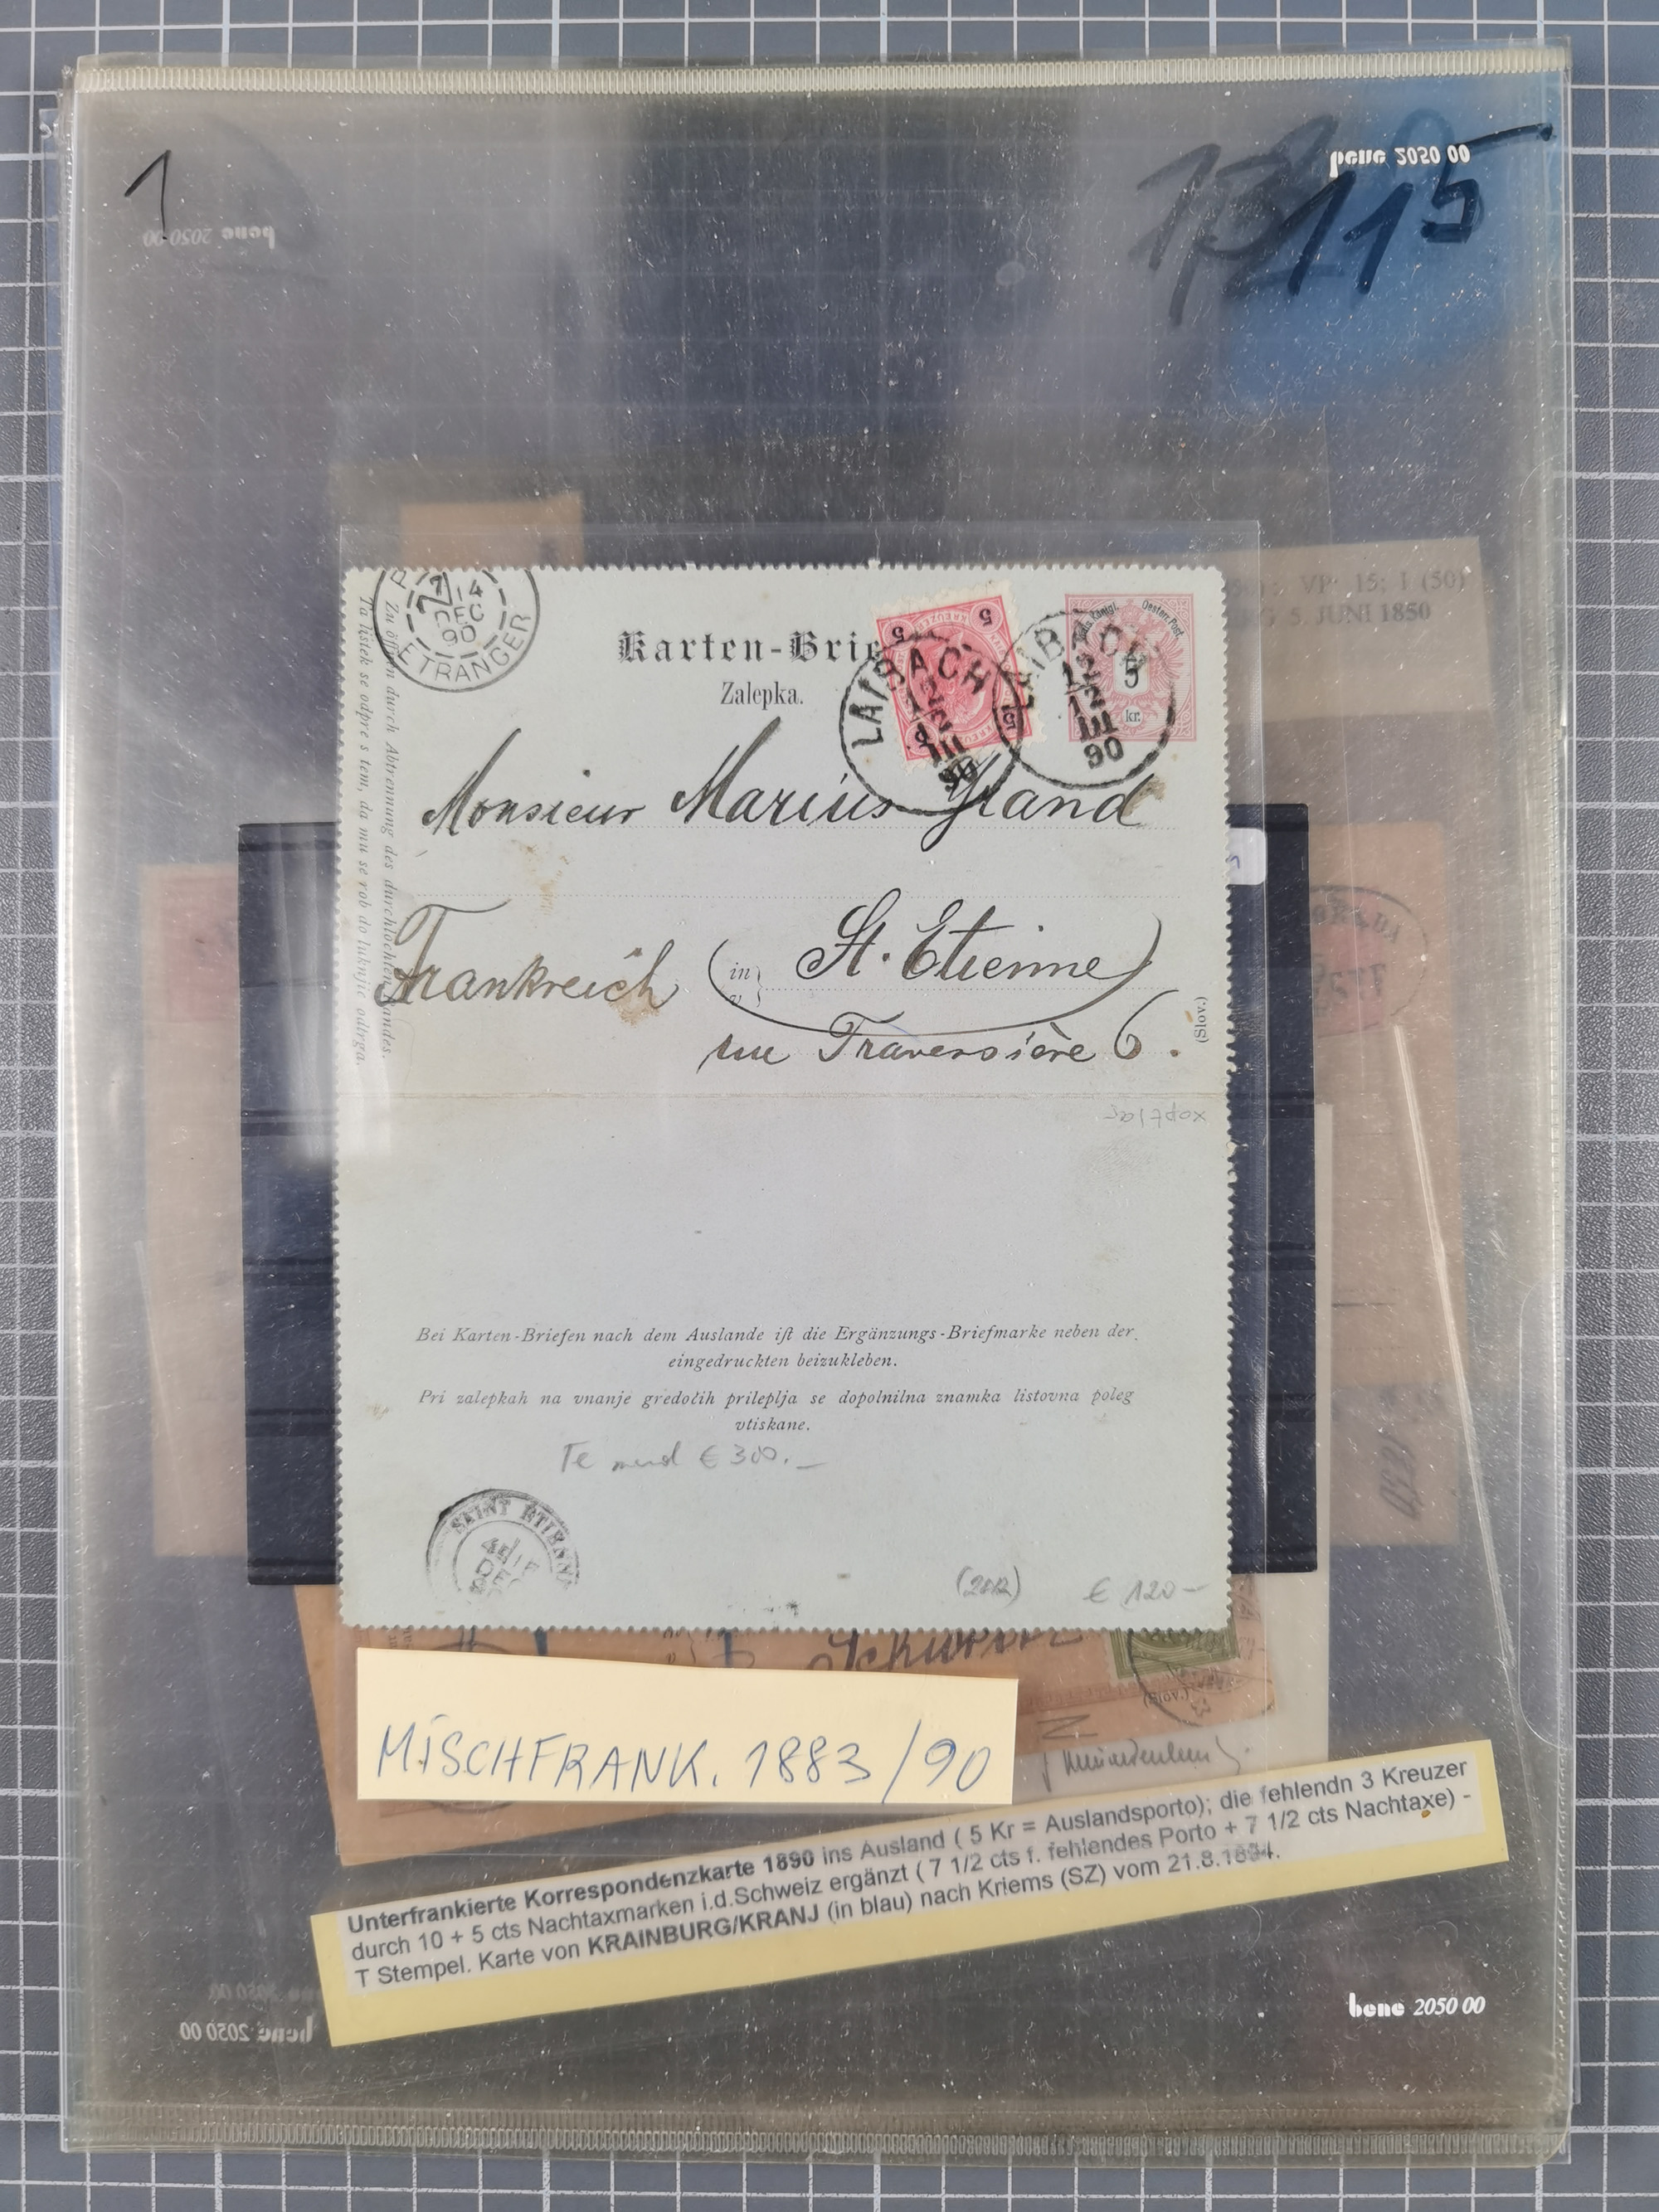 1
bene 2050 00
115
bene 2050 00
VP: 15; 1 (50)
5. JUNI 1850
14
DEC
90
ETRANGER
Karten-Brie
Zalepka.
5 KREUZER 5
Kais. Königl. Oesterr. Post.
5
kr.
LAIBACH
12
12
III
90
LAIBACH
12
12
III
90
Zu öffnen durch Abtrennung des durchlochten Randes.
Ta listek se odpre s tem, da mu se rob do luknjic odtrga.
Monsieur Marius Grand
Frankreich (in St. Etienne)
v
rue Traversière 6.
(Slov.)
Bei Karten-Briefen nach dem Auslande ist die Ergänzungs-Briefmarke neben der
eingedruckten beizukleben.
Pri zalepkah na vnanje gredočih prileplja se dopolnilna znamka listovna poleg
vtiskane.
€ 300.—
SAINT ETIENNE
DEC
(2012) € 120—
MISCHFRANK. 1883/90
Unterfrankierte Korrespondenzkarte 1890 ins Ausland ( 5 Kr = Auslandsporto); die fehlendn 3 Kreuzer
durch 10 + 5 cts Nachtaxmarken i.d.Schweiz ergänzt ( 7 1/2 cts f. fehlendes Porto + 7 1/2 cts Nachtaxe) -
T Stempel. Karte von KRAINBURG/KRANJ (in blau) nach Kriems (SZ) vom 21.8.1894.
bene 2050 00
bene 2050 00